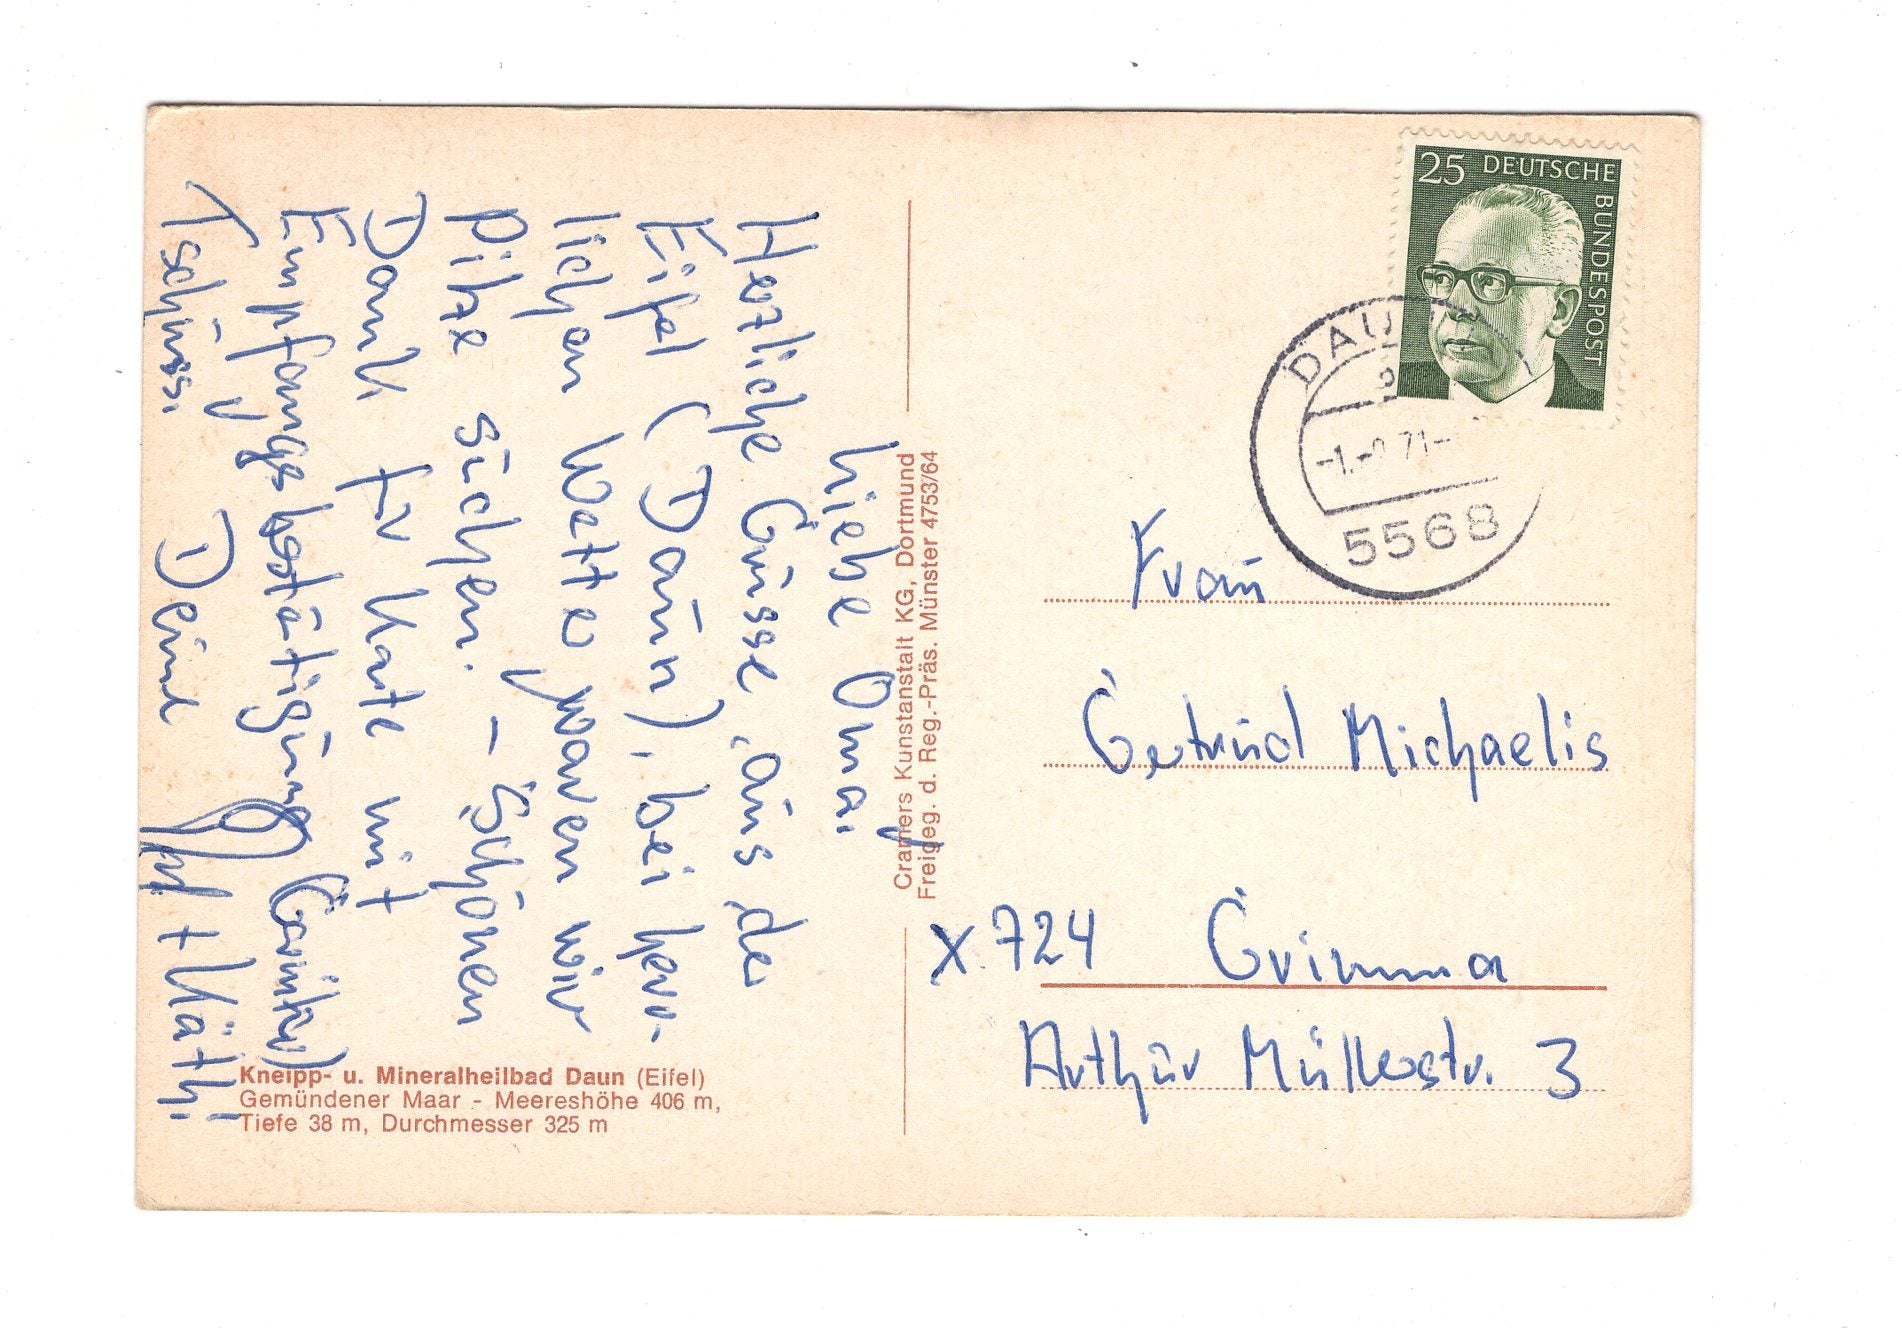 Liebe Oma,
Herzliche Grüsse, aus der
Eifel (Daun), bei herr-
lichen Wetter waren wir
Pilze suchen. – Schönen
Dank für Karte mit
Empfangsbestätigung
Tschüss. Deine + Käthi
Kneipp- u. Mineralheilbad Daun (Eifel)
Gemündener Maar - Meereshöhe 406 m,
Tiefe 38 m, Durchmesser 325 m
Cramers Kunstanstalt KG, Dortmund
Freigeg. d. Reg.-Präs. Münster 4753/64
25 DEUTSCHE
BUNDESPOST
DAUN
71
5568
Frau
Gertrud Michaelis
X 724 Grimma
Arthur Müllerstr. 3